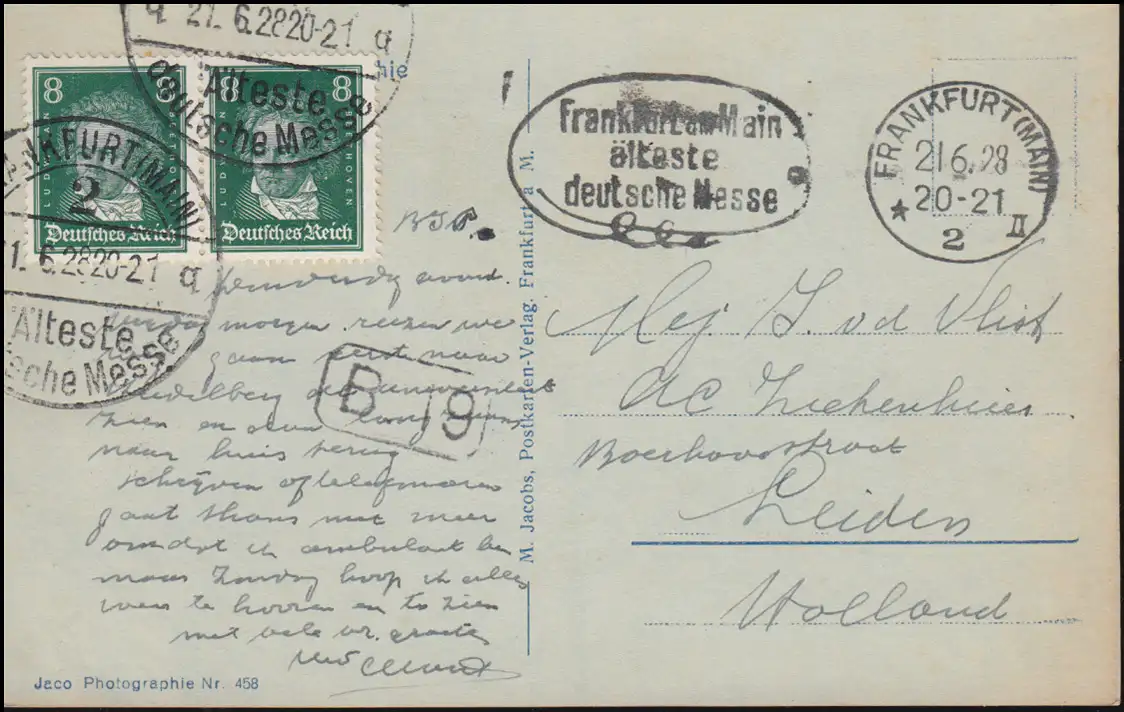 21.6.28 20-21 a
Älteste
deutsche Messe
8 8
LUDWIG VAN BEETHOVEN
Deutsches Reich
8 8
LUDWIG VAN BEETHOVEN
Deutsches Reich
FRANKFURT(MAIN)
2
21.6.28 20-21 a
Älteste
deutsche Messe
Frankfurt am Main
älteste
deutsche Messe
FRANKFURT(MAIN)
21.6.28
20-21
* 2 II
B 19
avond
morgen reizen we
gaan eerst naar
Heidelberg de
zien en dan
naar huis terug
schrijven of telefoneren
gaat thans niet meer
omdat ik ambulant ben
maar Zondag hoop ik alles
weer te horen en te zien
met vele gr. groeten
M. Jacobs, Postkarten-Verlag, Frankfurt a M.
Mej. v d Vlist
AC Ziekenhuis
Boerhaavestraat
Leiden
Holland
Jaco Photographie Nr. 458